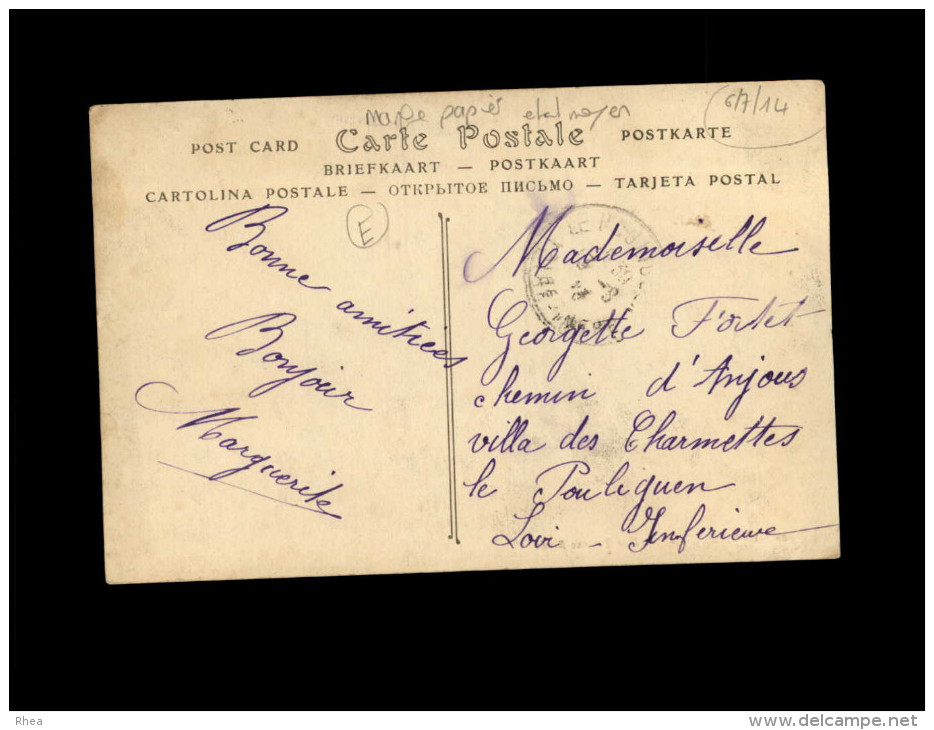 6/7/14
papier
POST CARD Carte Postale POSTKARTE
BRIEFKAART — POSTKAART
CARTOLINA POSTALE — ОТКРЫТОЕ ПИСЬМО — TARJETA POSTAL
E
Bonne amitiées
Bonjour
Marguerite
LE
Mademoiselle
Georgette Fortet
chemin d'Anjous
villa des Charmettes
le Pouliguen
Loir - Inferieure
Rhea
http://www.delcampe.net